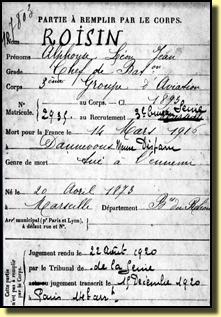 PARTIE À REMPLIR PAR LE CORPS.
Nom ROISIN
Prénoms Alphonse Léon Jean
Grade Chef de Baton
Groupe d'Aviation
N° Matricule. au Corps. — Cl. 1893
au Recrutement Seine
Mort pour la France le 14 Mars 1916
à Dannevoux Meuse
Genre de mort tué à l'ennemi
Né le 20 Avril 1873
à Marseille Département Bes du Rhône
Arrt municipal (pr Paris et Lyon),
à défaut rue et N°.
Cette partie n'est pas à remplir par le Corps.
Jugement rendu le 22 Août 1920
par le Tribunal de de la Seine
jugement transcrit le 15 Décembre 1920
Paris 16e arr.